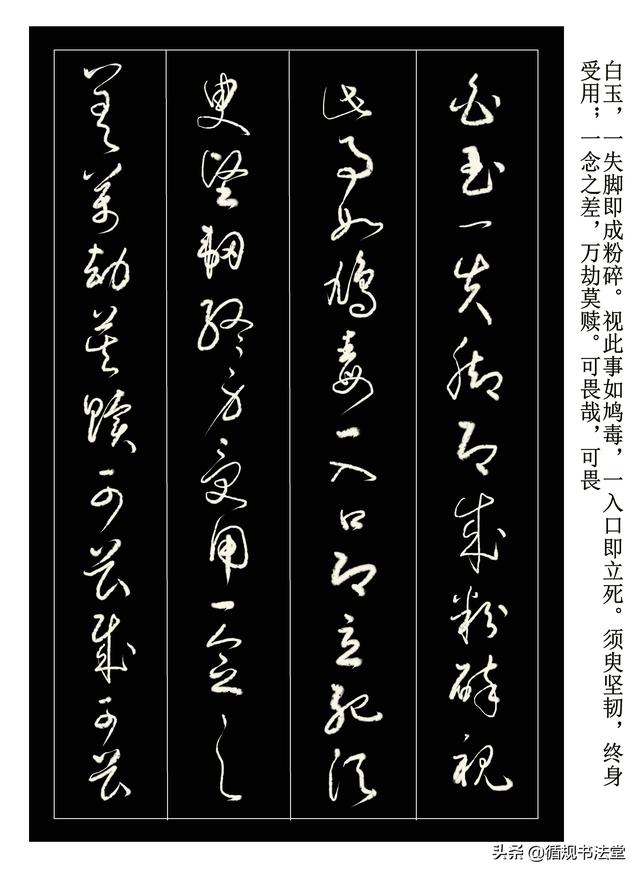 白玉，一失脚即成粉碎。视此事如鸠毒，一入口即立死。须臾坚韧，终身
受用；一念之差，万劫莫赎。可畏哉，可畏
白玉一失脚即成粉碎視
此事如鴆毒一入口即立死須
臾堅韌終身受用一念之
差萬劫莫贖可畏哉可畏
头条 @循规书法堂